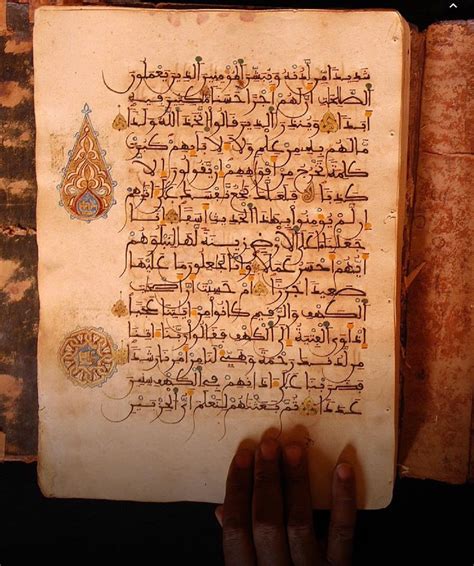 شديدا من لدنه ويبشر المومنين الذين يعملون
الصلحت ان لهم اجرا حسنا مكثين فيه
ابدا وينذر الذين قالوا اتخذ الله ولدا
ما لهم به من علم ولا لابايهم كبرت
كلمة تخرج من افوههم ان يقولون الا
كذبا فلعلك بخع نفسك على اثرهم
ان لم يومنوا بهذا الحديث اسفا انا
جعلنا ما على الارض زينة لها لنبلوهم
ايهم احسن عملا وانا لجعلون ما عليها
صعيدا جرزا ام حسبت ان اصحب
الكهف والرقيم كانوا من ايتنا عجبا
اذ اوى الفتية الى الكهف فقالوا ربنا اتنا
من لدنك رحمة وهيئ لنا من امرنا رشدا
فضربنا على اذانهم في الكهف سنين
عددا ثم بعثنهم لنعلم اي الحزبين